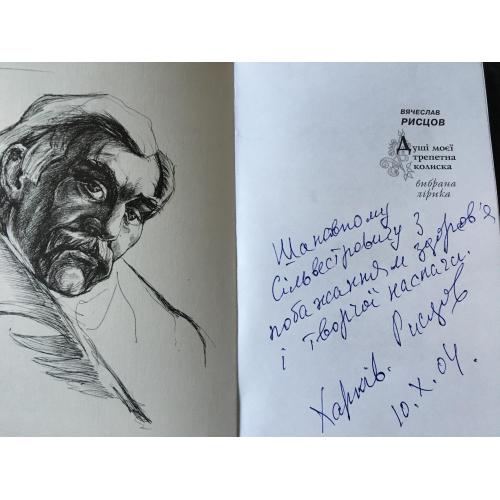 ВЯЧЕСЛАВ
РИСЦОВ
Душі моєї
трепетна
колиска
вибрана
лірика
Шановному
Сільвестровичу з
побажанням здоров'я
і творчої наснаги.
Рисцов
Харків.
10.X.04.